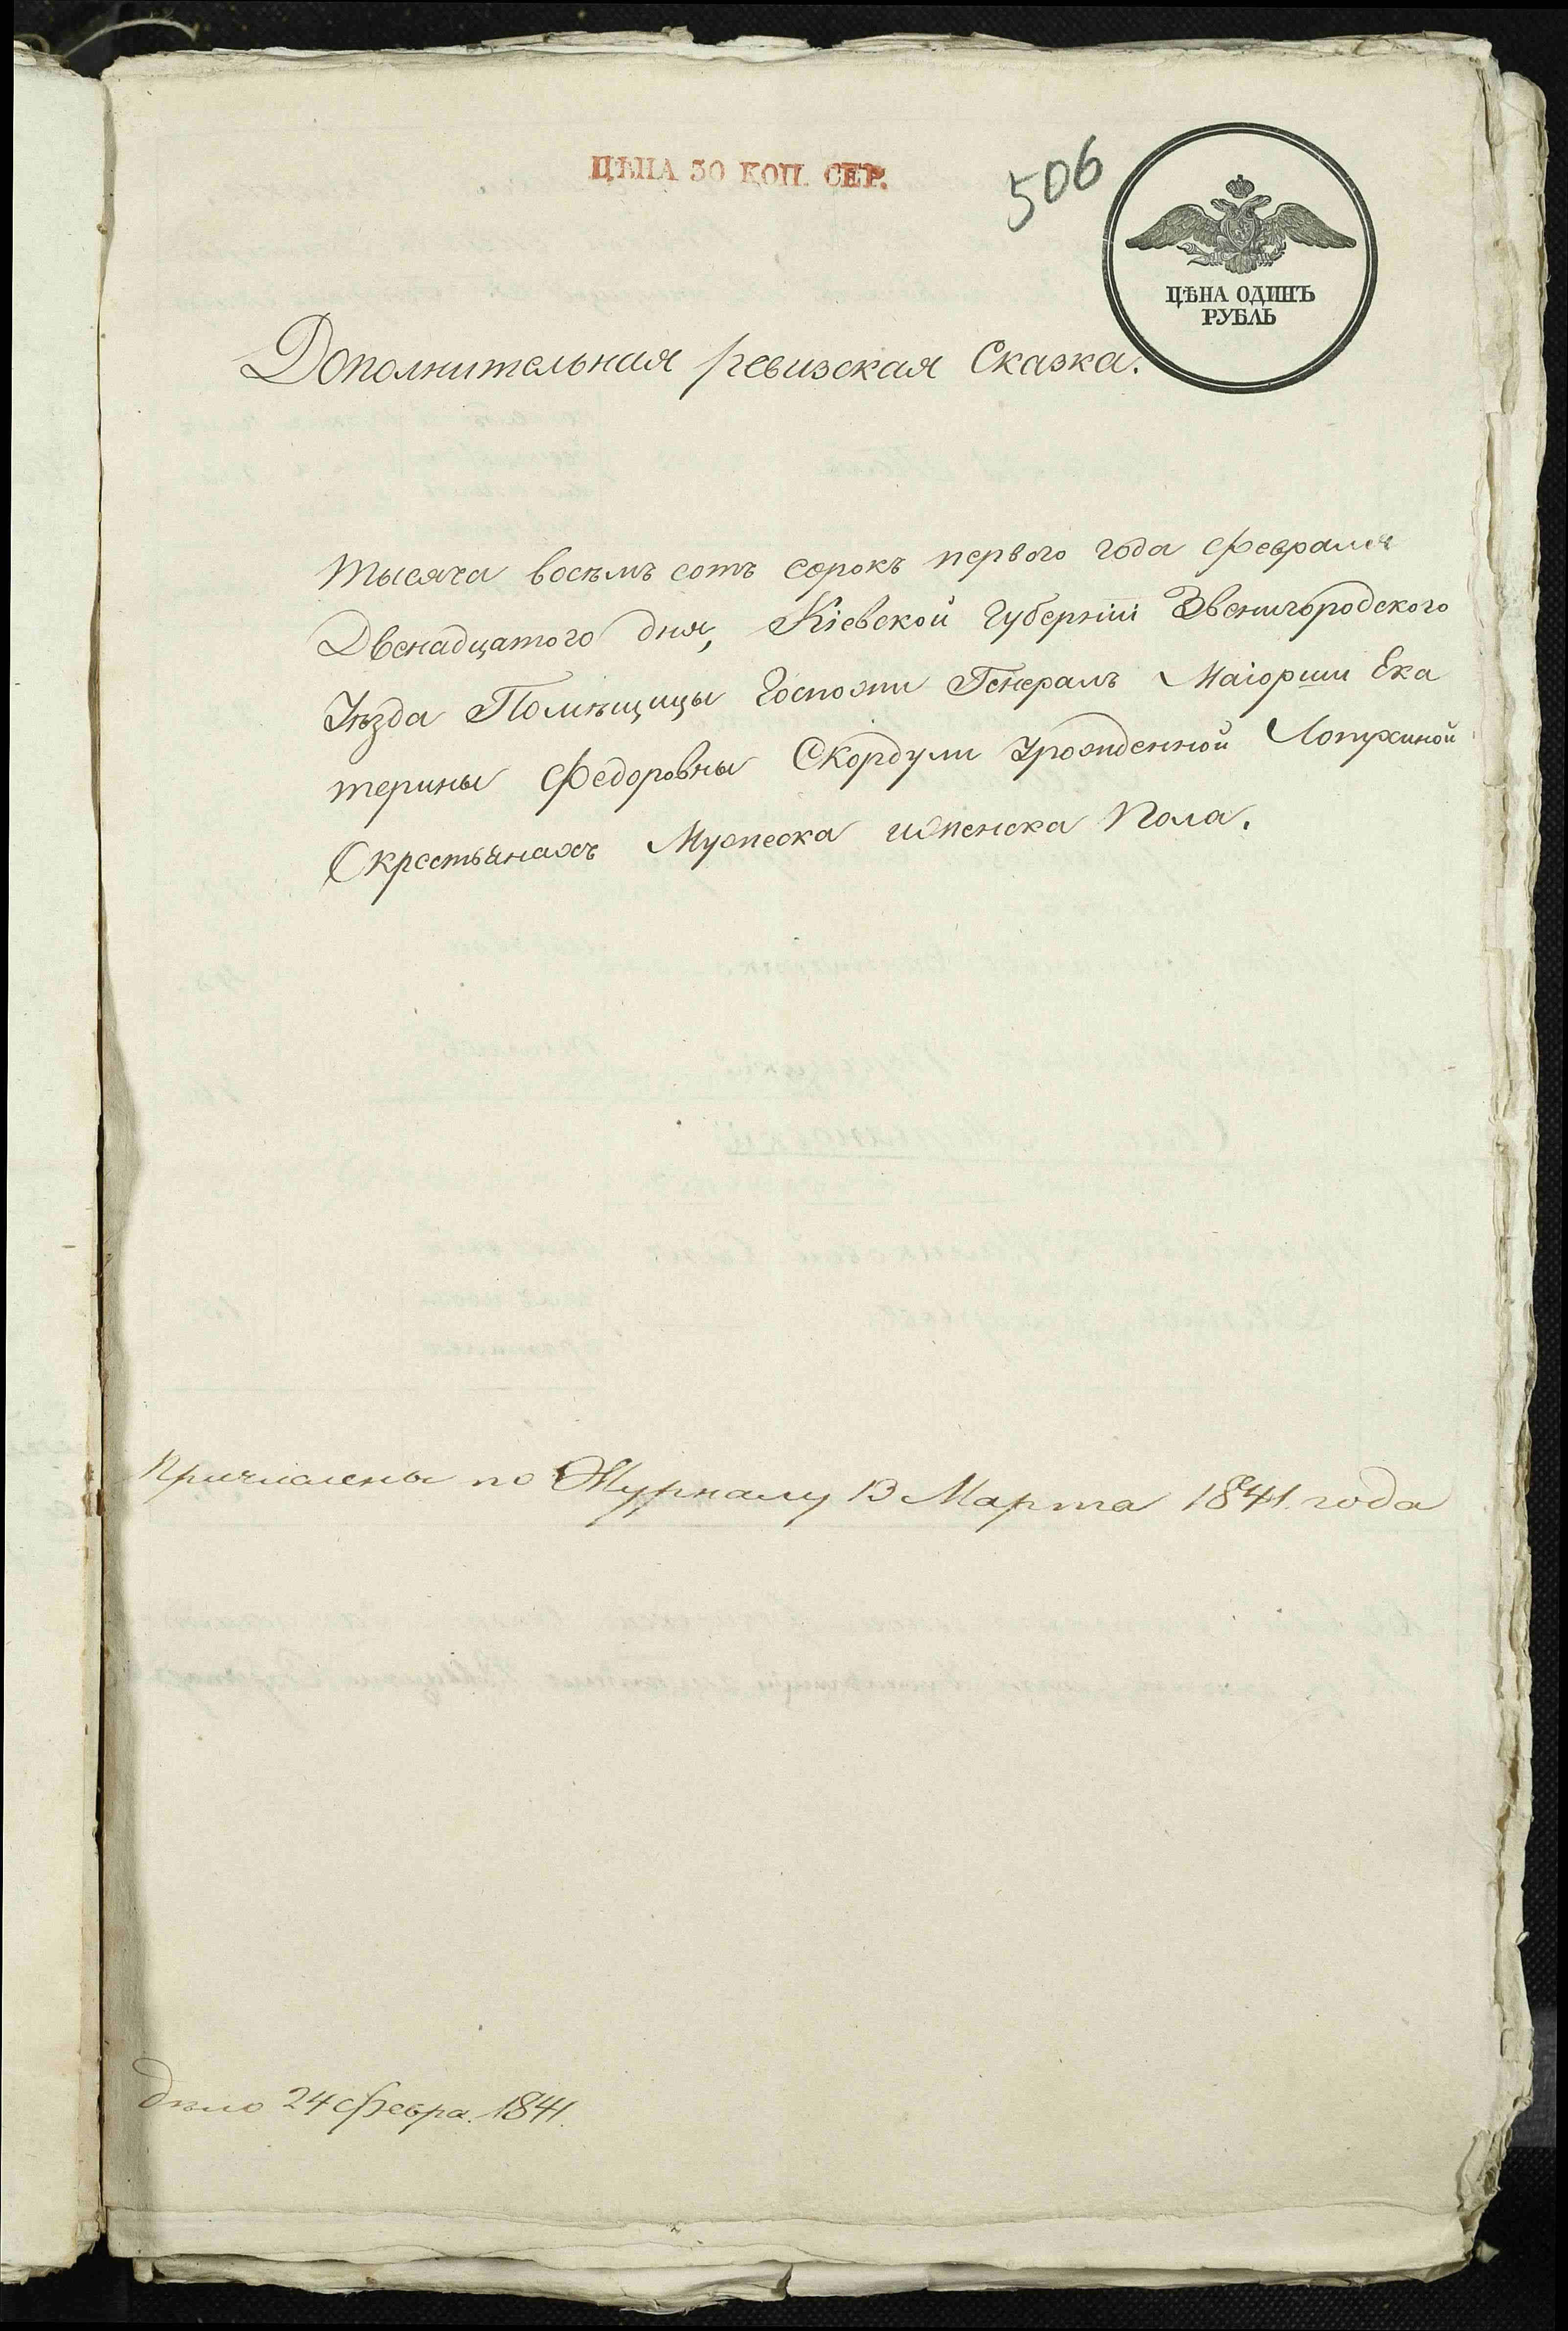 ЦѢНА 30 КОП. СЕР.
506
ЦѢНА ОДИНЪ
РУБЛЬ
Дополнительная ревизская Сказка.
тысяча восѣмъ сотъ сорокъ первого года февраля
Двенадцатого дня, Кіевской Губерніи Звенигородского
Уѣзда Помѣщицы Госпожи Генералъ Маіорши Ека
терины Федоровны Скордули Урожденной Лопухиной
О крестьянахъ Мужеска и женска Пола.
Причислены по Журналу 13 Марта 1841 года
дѣло 24 февра. 1841.